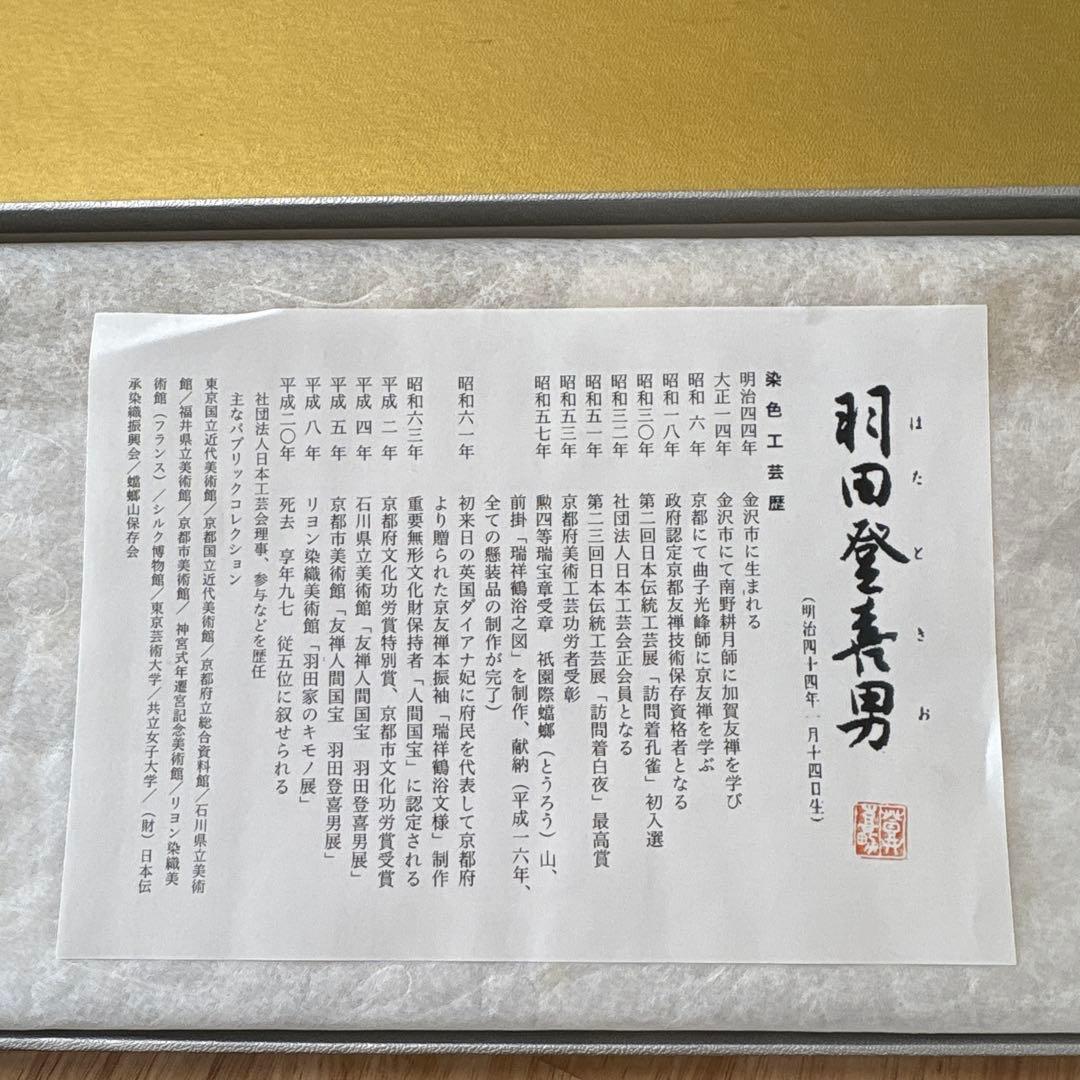 はたときお
羽田登喜男
(明治四十四年一月十四日生)
染色工芸歴
明治四四年 金沢市に生まれる
大正一四年 金沢市にて南野耕月師に加賀友禅を学び
昭和 六 年 京都にて曲子光峰師に京友禅を学ぶ
昭和一八年 政府認定京都友禅技術保存資格者となる
昭和三〇年 第二回日本伝統工芸展「訪問着孔雀」初入選
昭和三二年 社団法人日本工芸会正会員となる
昭和五一年 第二三回日本伝統工芸展「訪問着白夜」最高賞
昭和五三年 京都府美術工芸功労者受彰
昭和五七年 勲四等瑞宝章受章 祇園際蟷螂(とうろう)山、
前掛「瑞祥鶴浴之図」を制作、献納(平成一六年、
全ての懸装品の制作が完了)
昭和六一年 初来日の英国ダイアナ妃に府民を代表して京都府
より贈られた京友禅本振袖「瑞祥鶴浴文様」制作
昭和六三年 重要無形文化財保持者「人間国宝」に認定される
平成 二 年 京都府文化功労賞特別賞、京都市文化功労賞受賞
平成 四 年 石川県立美術館「友禅人間国宝 羽田登喜男展」
平成 五 年 京都市美術館「友禅人間国宝 羽田登喜男展」
平成 八 年 リヨン染織美術館「羽田家のキモノ展」
平成二〇年 死去 享年九七 従五位に叙せられる
社団法人日本工芸会理事、参与などを歴任
主なパブリックコレクション
東京国立近代美術館/京都国立近代美術館/京都府立総合資料館/石川県立美術
館/福井県立美術館/京都市美術館/ 神宮式年遷宮記念美術館/リヨン染織美
術館(フランス)/シルク博物館/東京芸術大学/共立女子大学/(財)日本伝
承染織振興会/蟷螂山保存会